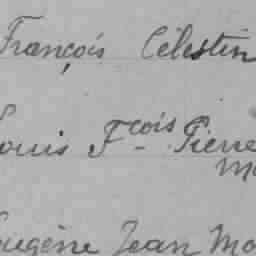 François Célestin
Louis Fçois Pierre
Eugène Jean